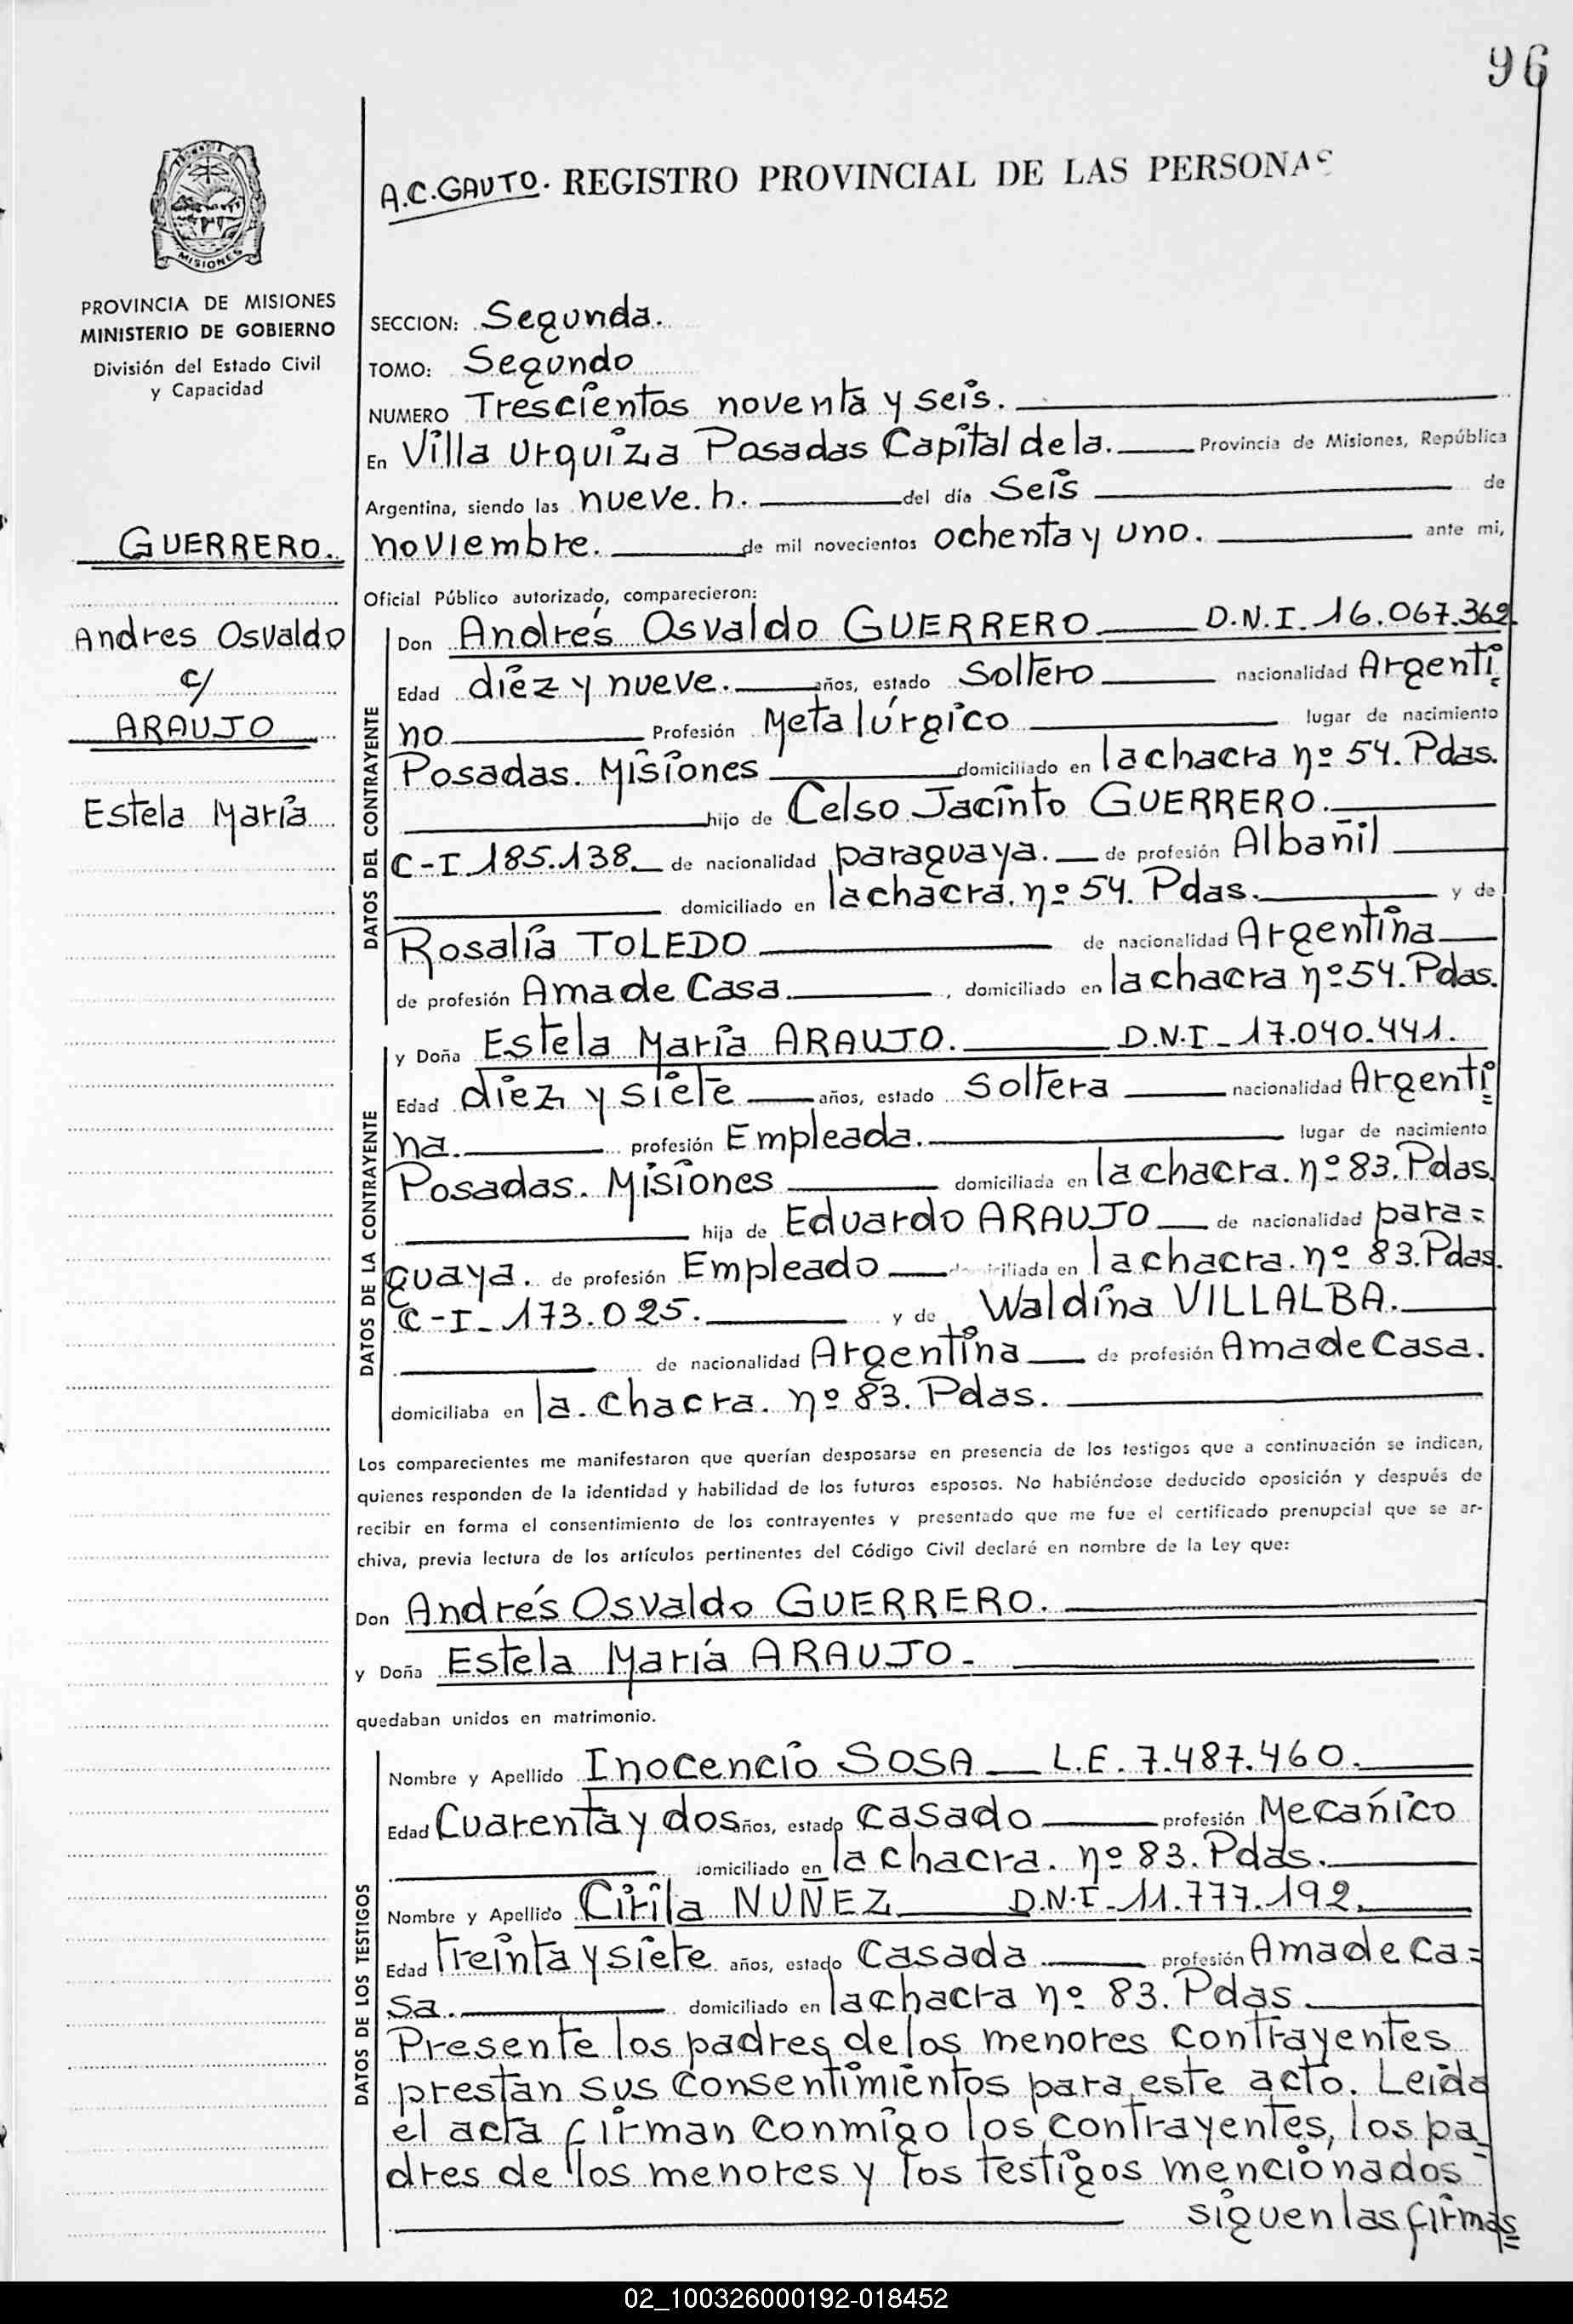 96
A.C.GAUTO. REGISTRO PROVINCIAL DE LAS PERSONAS
MISIONES
PROVINCIA DE MISIONES
MINISTERIO DE GOBIERNO
División del Estado Civil
y Capacidad
SECCION: Segunda.
TOMO: Segundo
NUMERO Trescientos noventa y seis.
En Villa Urquiza Posadas Capital de la. Provincia de Misiones, República
Argentina, siendo las nueve. h. del día Seis de
noviembre. de mil novecientos ochenta y uno. ante mi,
Oficial Público autorizado, comparecieron:
GUERRERO.
Andres Osvaldo
c/
ARAUJO
Estela María
DATOS DEL CONTRAYENTE
Don Andrés Osvaldo GUERRERO D.N.I. 16.067.369.
Edad diez y nueve. años, estado Soltero nacionalidad Argenti=
no Profesión Metalúrgico lugar de nacimiento
Posadas. Misiones domiciliado en la chacra nº 54. Pdas.
hijo de Celso Jacinto GUERRERO.
C-I 185.138. de nacionalidad paraguaya. de profesión Albañil
domiciliado en la chacra. nº 54. Pdas. y de
Rosalía TOLEDO de nacionalidad Argentina
de profesión Ama de Casa. , domiciliado en la chacra nº 54. Pdas.
DATOS DE LA CONTRAYENTE
y Doña Estela María ARAUJO. D.N.I - 17.040.441.
Edad diez y siete años, estado Soltera nacionalidad Argenti=
na. profesión Empleada. lugar de nacimiento
Posadas. Misiones domiciliada en la chacra. nº 83. Pdas.
hija de Eduardo ARAUJO de nacionalidad para=
guaya. de profesión Empleado domiciliada en la chacra. nº 83. Pdas.
C-I- 173.025. y de Waldina VILLALBA.
de nacionalidad Argentina de profesión Ama de Casa.
domiciliaba en la. chacra. nº 83. Pdas.
Los comparecientes me manifestaron que querían desposarse en presencia de los testigos que a continuación se indican,
quienes responden de la identidad y habilidad de los futuros esposos. No habiéndose deducido oposición y después de
recibir en forma el consentimiento de los contrayentes y presentado que me fue el certificado prenupcial que se ar-
chiva, previa lectura de los artículos pertinentes del Código Civil declaré en nombre de la Ley que:
Don Andrés Osvaldo GUERRERO.
y Doña Estela María ARAUJO-
quedaban unidos en matrimonio.
DATOS DE LOS TESTIGOS
Nombre y Apellido Inocencio SOSA L.E. 7.487.460.
Edad Cuarenta y dos años, estado casado profesión Mecánico
domiciliado en la chacra. nº 83. Pdas.
Nombre y Apellido Cirila NUÑEZ D.N.I- 11.777.192.
Edad treinta y siete años, estado Casada profesión Ama de Ca=
sa. domiciliado en la chacra nº 83. Pdas
Presente los padres de los menores contrayentes
prestan sus consentimientos para este acto. Leida
el acta firman conmigo los contrayentes, los pa-
dres de los menores y los testigos mencionados
siguen las firmas=
02_100326000192-018452